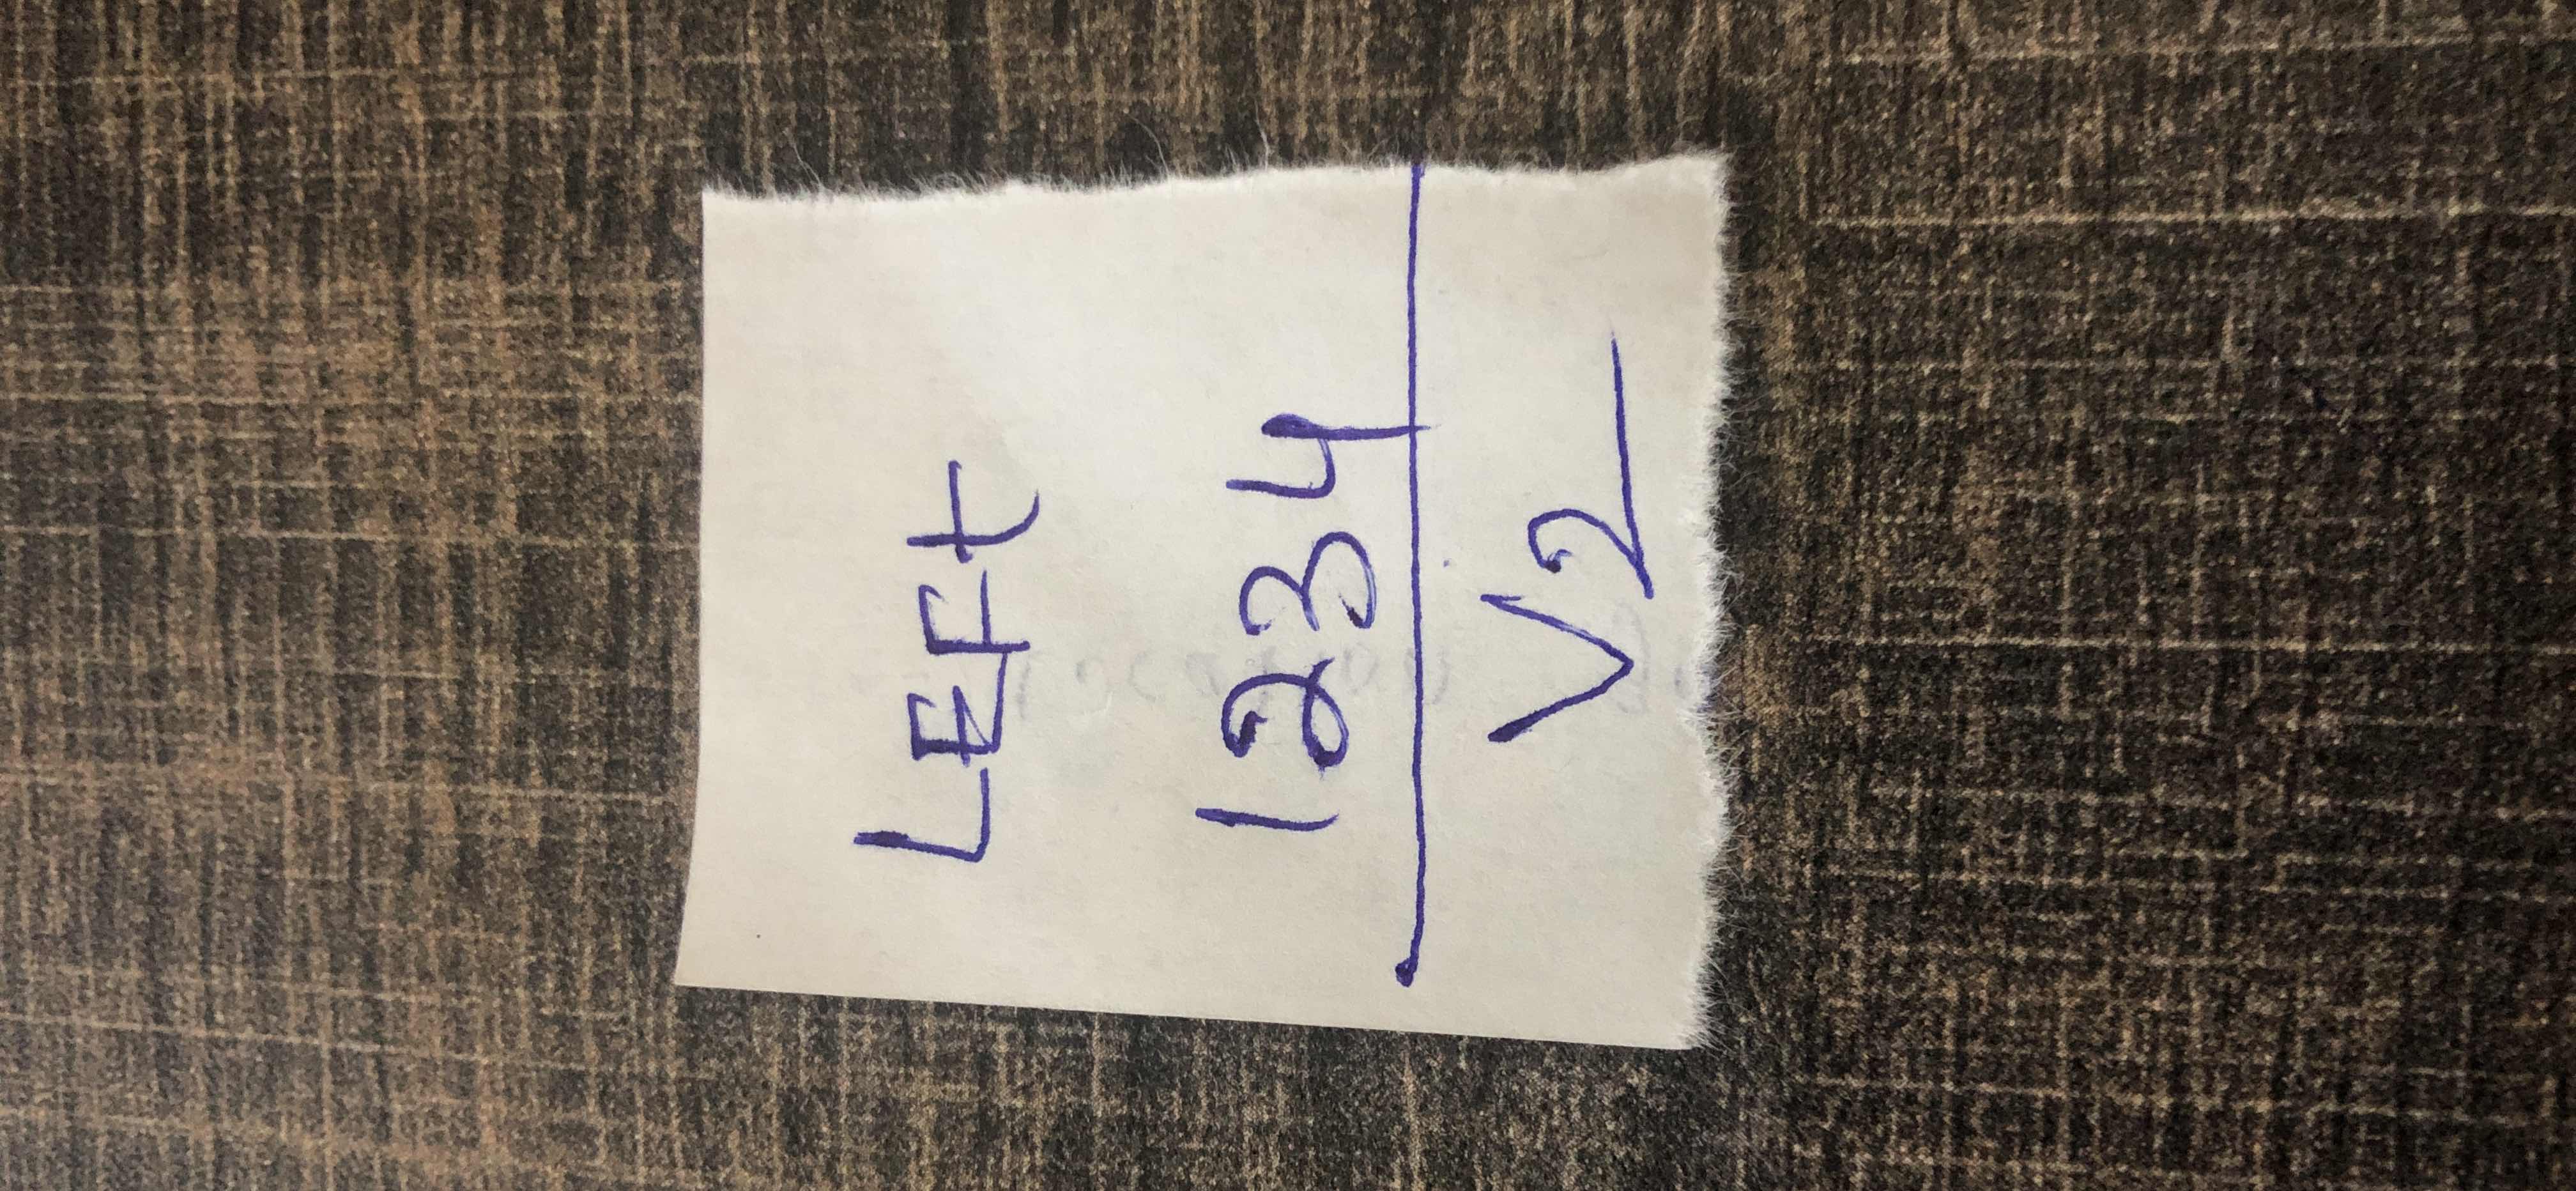 LEFt
1234
V2